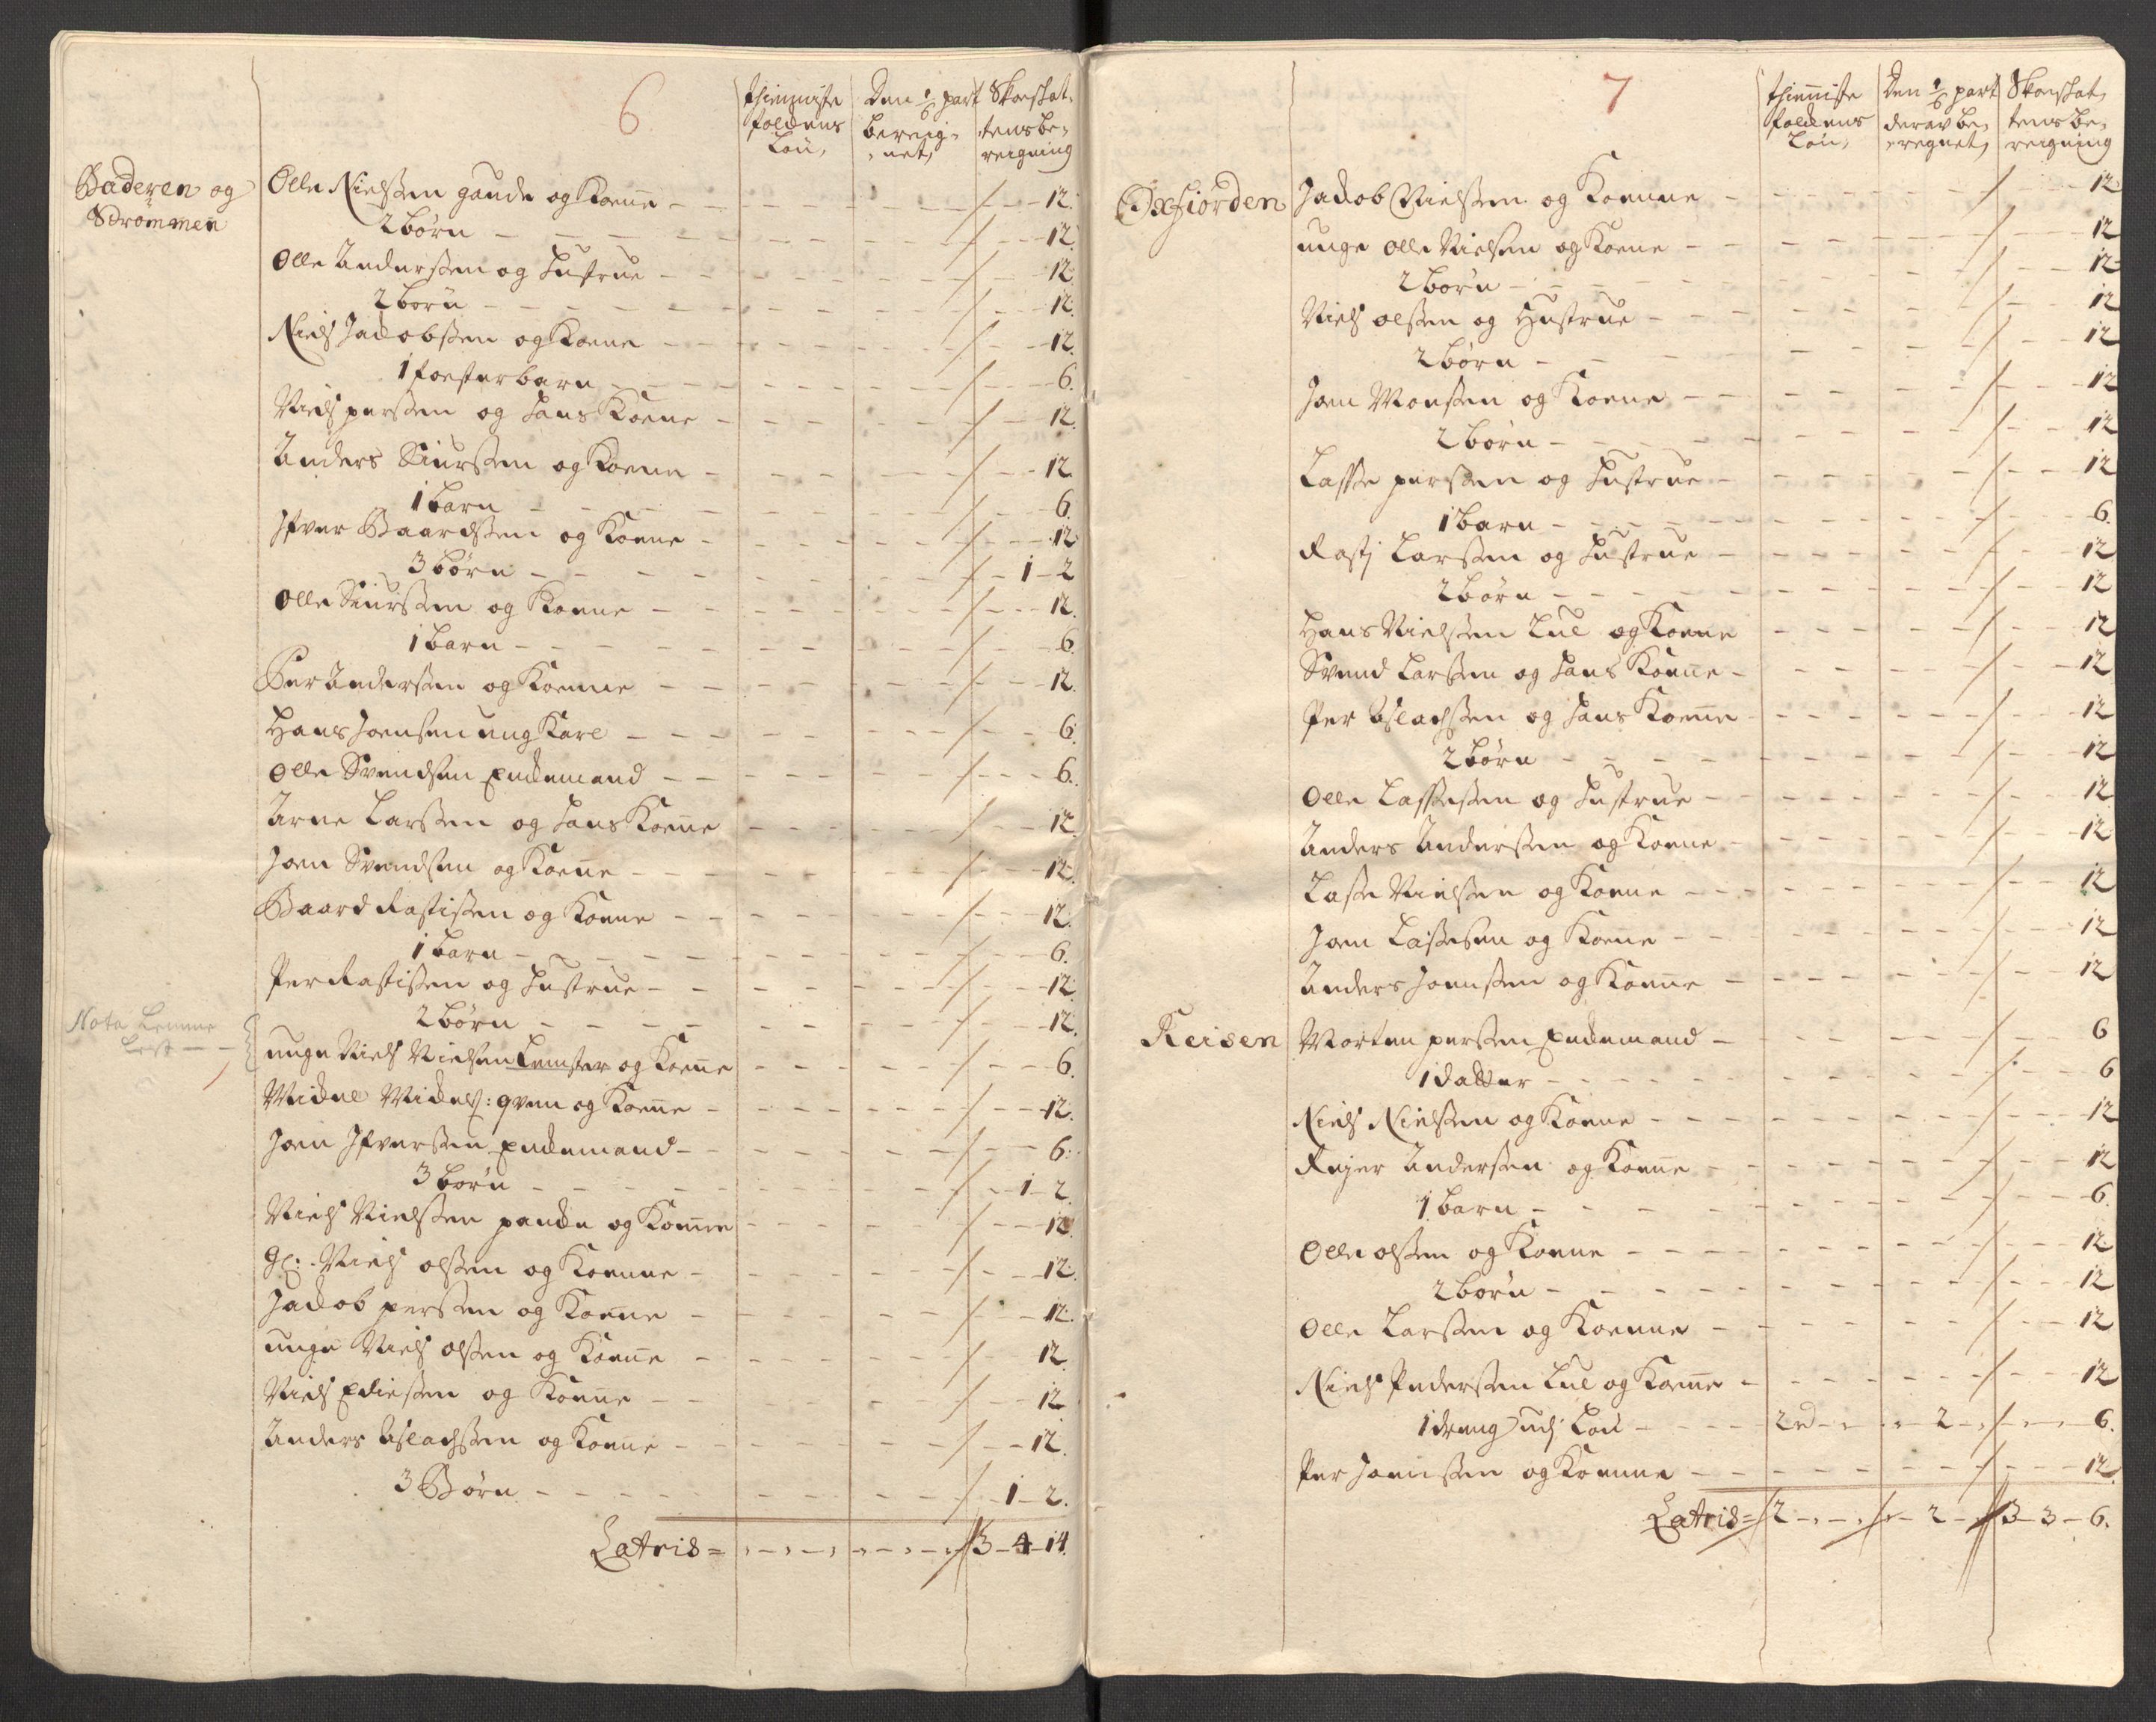 6
thienniste folckens Løn,
Den 1/6 part bereig-net,
Skoeskat-tens be-reigning
Baderen og Strømmen
Olle Nielssen gaude og Koene - 12.
2 børn - 12.
Olle Anderssen og hustrue - 12.
2 børn - 12.
Niels Jacobssen og Koene - 12.
1 fosterbarn - 6.
Niels perssen og hans Koene - 12.
Anders Siurssen og Koene - 12
1 barn - 6.
Ifver Baardssen og Koene - 12
3 børn - 1 - 2
Olle Siurssen og Koene - 12.
1 barn - 6.
Per Anderssen og Koenne - 12.
Hans Joensen ung Karl - 6.
Olle Svendsen Enckemand - 6.
Arne Larssen og hans Koene - 12.
Joen Svendsen og Koene - 12.
Baard Rastissen og Koene - 12.
1 barn - 6.
Per Rastissen og hustrue - 12.
2 børn - 12.
Nota Lemme
unge Niels Nielsen Lemster og Koene - 6.
Michel Michels: qven og Koene - 12.
Joen Ifverssen Enckemand - 6.
3 børn - 1 - 2.
Niels Nielssen pancke og Koene - 12.
Gl: Niels olssen og Koenne - 12.
Jacob perssen og Koene - 12.
unge Niels olssen og Koene - 12.
Niels Ediessen og Koene - 12
Anders Aslachssen og Koene - 12.
3 Børn - 1 - 2.
Latris = 3 - 4 - 14.
7
thienniste folckens Løn,
Den 1/6 part derav be-eregnet,
Skoeskat-tens be-reigning
Oxfiorden
Jacob Nielssen og Koenne - 12
unge Olle Nielsen og Koene - 12
2 børn - 12
Niels olssen og Hustrue - 12
2 børn - 12
Joen Monsen og Koene - 12
2 børn - 12
Lasse perssen og hustrue - 12
1 barn - 6.
Rastj Larssen og hustrue - 12
2 børn - 12
Hans Nielssen Lul og Koene - 12
Svend Larssen og hans Koene - 12
Per Aslachssen og hans Koene - 12
2 børn - 12
Olle Lassessen og hustrue - 12
Anders Anderssen og Koene - 12
Lasse Nielssen og Koene - 12
Joen Lassesen og Koene - 12
Anders Joenssen og Koene - 12
Reisen
Morten perssen Enckemand - 6
1 datter - 6
Niels Nielssen og Koene - 12
Reier Anderssen og Koene - 12
1 barn - 6.
Olle olssen og Koene - 12
2 børn - 12
Olle Larssen og Koenne - 12
Niels Pederssen Lul og Koene - 12
1 dreng udj Løn - 2 rd - 2 - 6.
Per Joenssen og Koenne - 12.
Latris = 2 - 2 - 3 - 3 - 6.